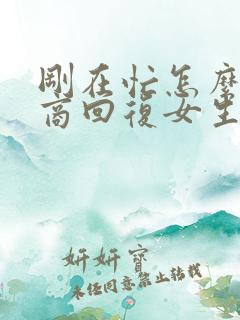 剛在忙怎麼
商回復女生
妍妍寶
未經同意禁止轉載